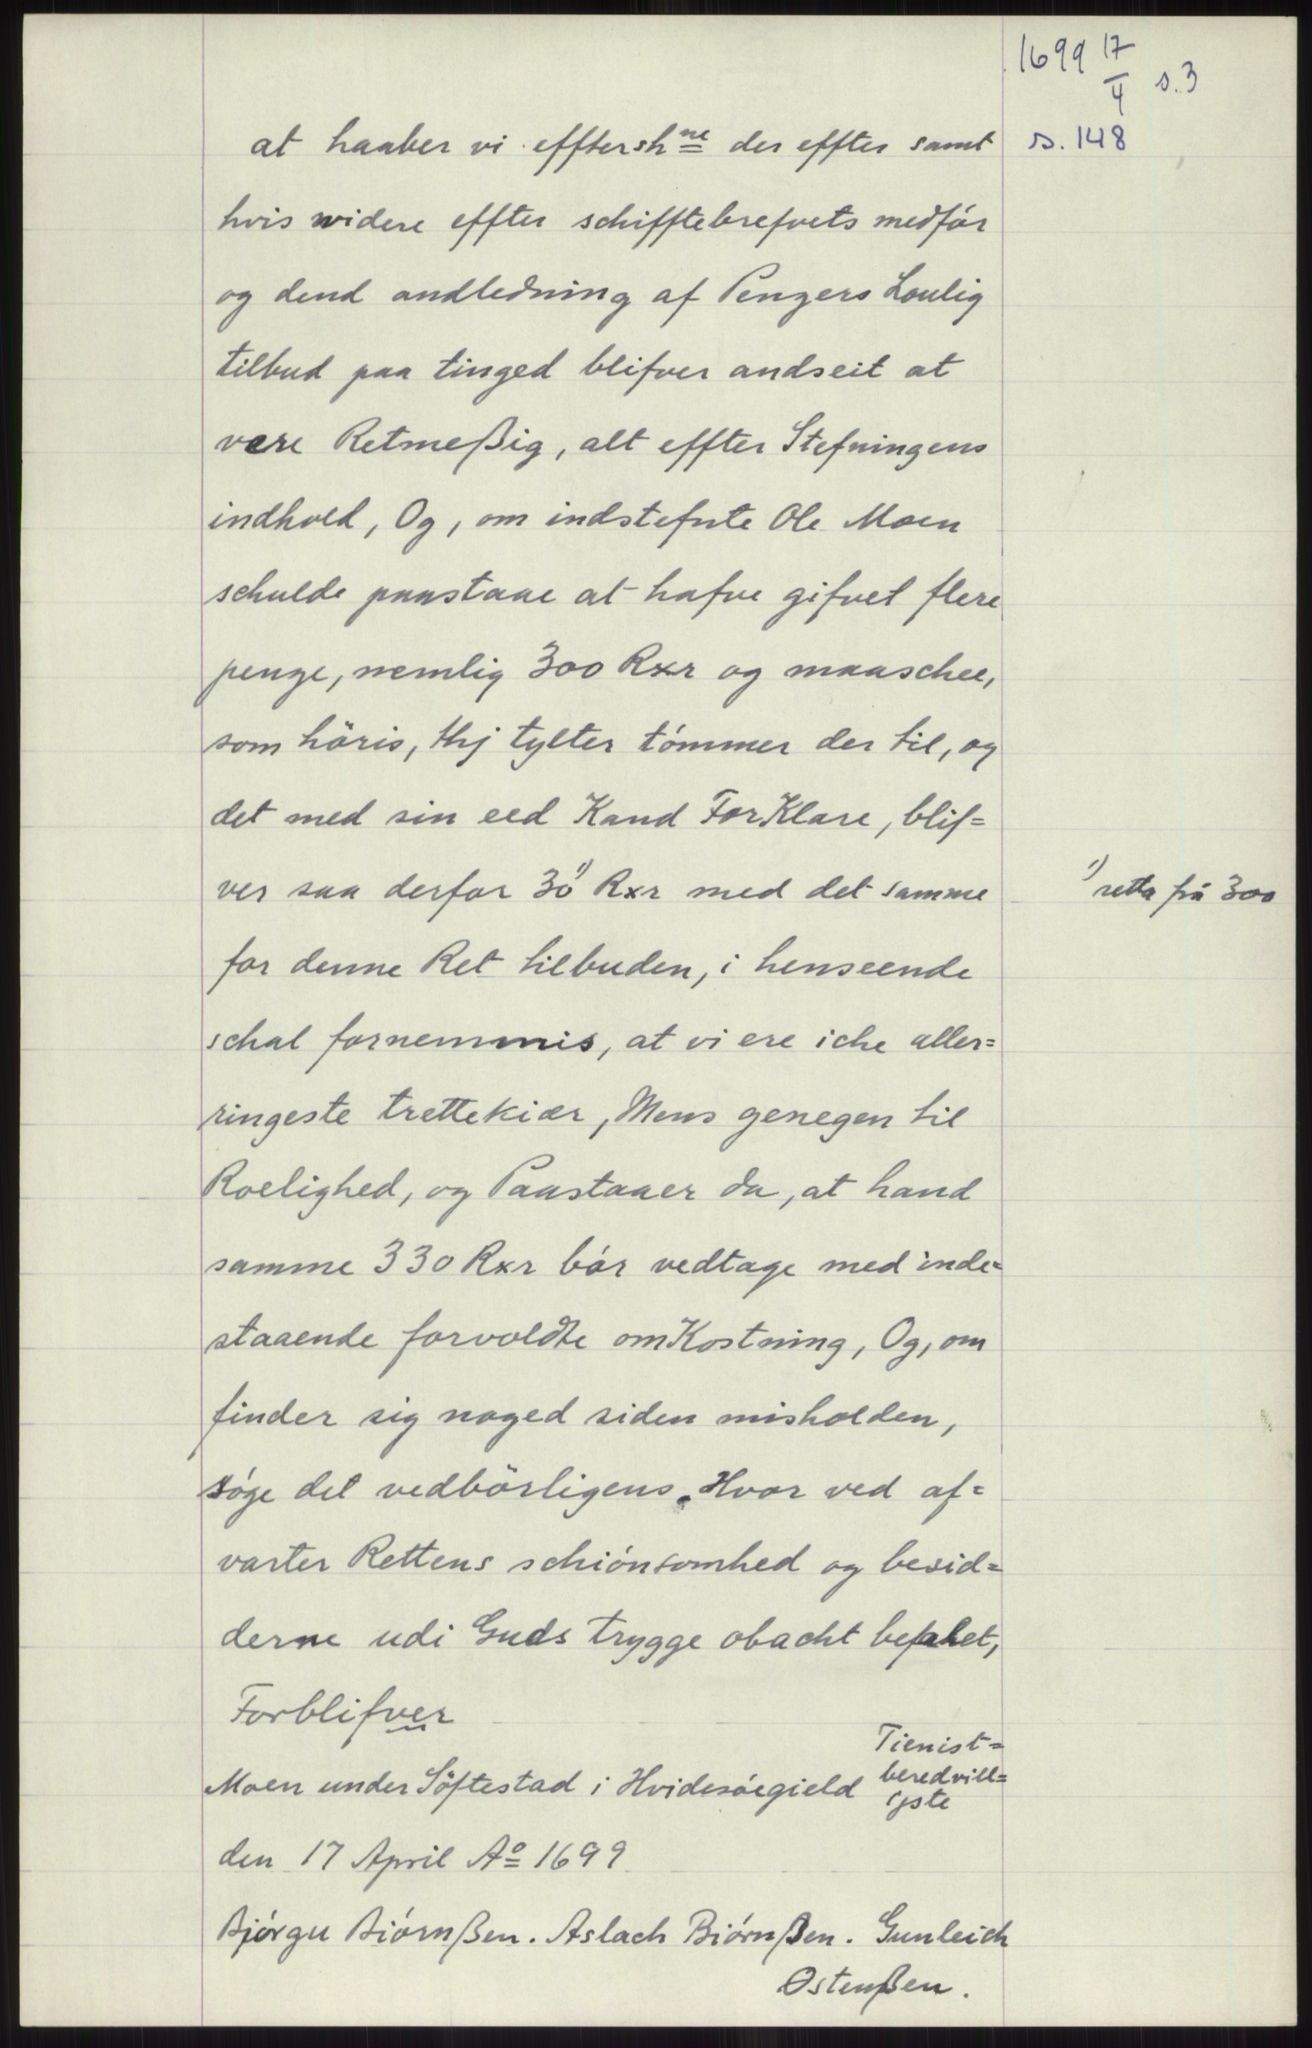 1699 17/4 s.3
s. 148
at haaber vi efftersh<sup>ne</sup> der effter samt
hvis widere effter schifftebrefvets medfór
og dend andledning af Penges Loulig
tilbud paa tinged blifver andseit at
være Retmeßig, alt effter Stefningens
indhold, Og, om indstefnte Ole Moen
schulde paastaae at hafve gifvet flere
penge, nemlig 300 Rxr og maaschee,
som höris, thj tylter tómmer der til, og
det med sin eed Kand ForKlare, blif=
ver saa derfor 30¹⁾ Rxr med det samme
¹⁾ retta frå 300
for denne Ret tilbuden, i henseende
schal fornemmis, at vi ere iche aller=
ringeste trettekiær, Mens genegen til
Roelighed, og Paastaaer da, at hand
samme 330 Rxr bór vedtage med inde=
staaende forvoldte omKostning, Og, om
finder sig noged siden misholden,
söge det vedbörligens. Hvor ved af=
varter Rettens schiónsomhed og besid=
derne udi Guds trygge obacht befalet,
Forblifver
Tienist=
beredvill=
igste
Moen under Söftestad i Hvidesóegield
den 17 April A<sup>o</sup> 1699
Bjórgu Biórnßen. Aslach Biórnßen. Gunleich
Ostenßen.